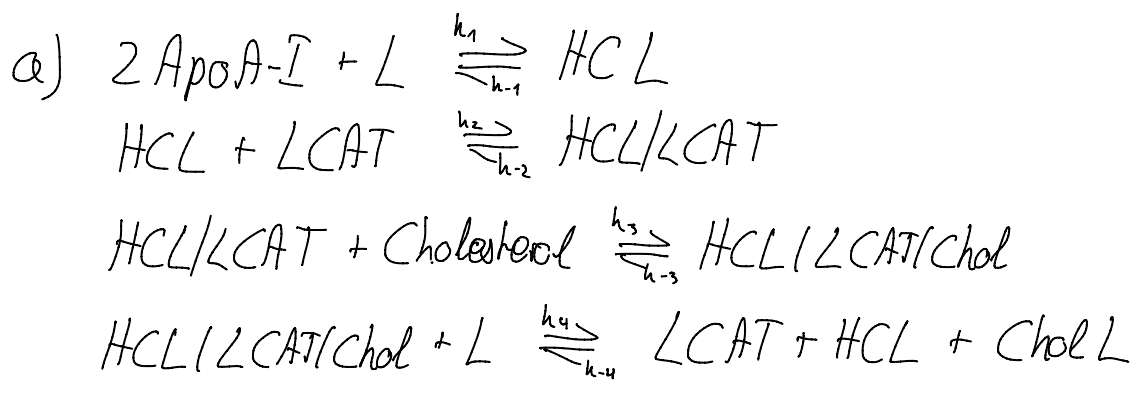 a) 2 ApoA-I + L k1 ⇌ k-1 HCL
HCL + LCAT k2 ⇌ k-2 HCL/LCAT
HCL/LCAT + Cholesterol k3 ⇌ k-3 HCL/LCAT/Chol
HCL/LCAT/Chol + L k4 ⇌ k-4 LCAT + HCL + Chol L